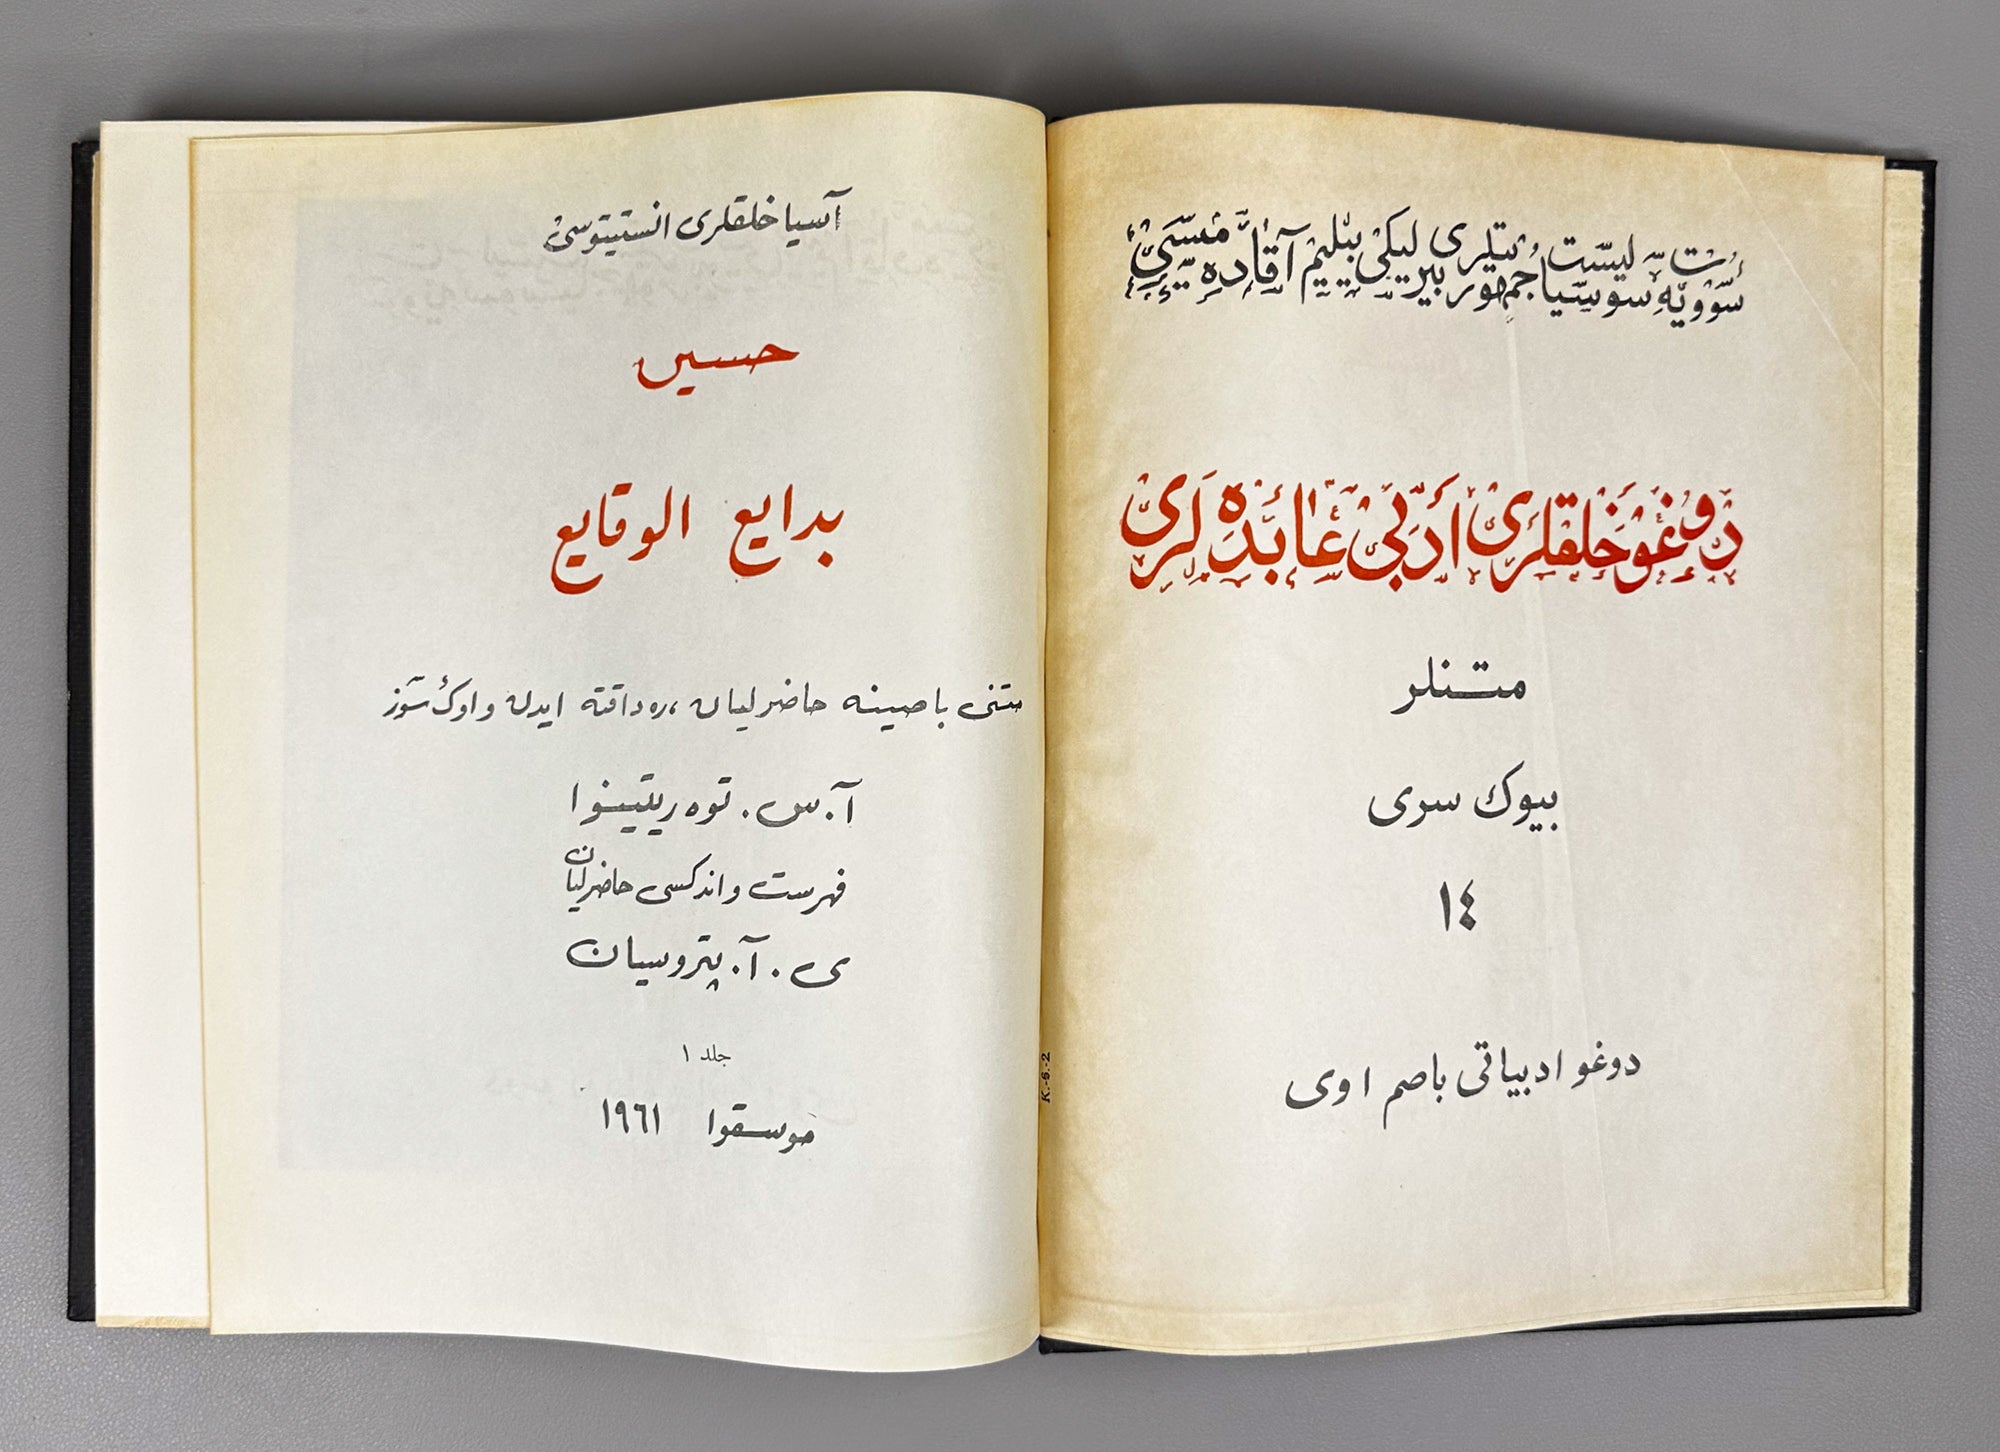 سوویەت سوسیالیست جمهوریتلری بیرلیکی بیلیم آقادەمیسی
دوغو خلقلری ادبی عابدەلری
متنلر
بیوك سری
١٤
دوغو ادبیاتی باصم اوی
K.-6.-2
آسیا خلقلری انستیتوسی
حسین
بدایع الوقایع
متنی باصینه حاضرلیان، رەداقته ایدن و اوك سوز
آ. س. توەریتینوا
فهرست و اندکسی حاضرلیان
ی. آ. پتروسیان
جلد ١
موسقوا ١٩٦١